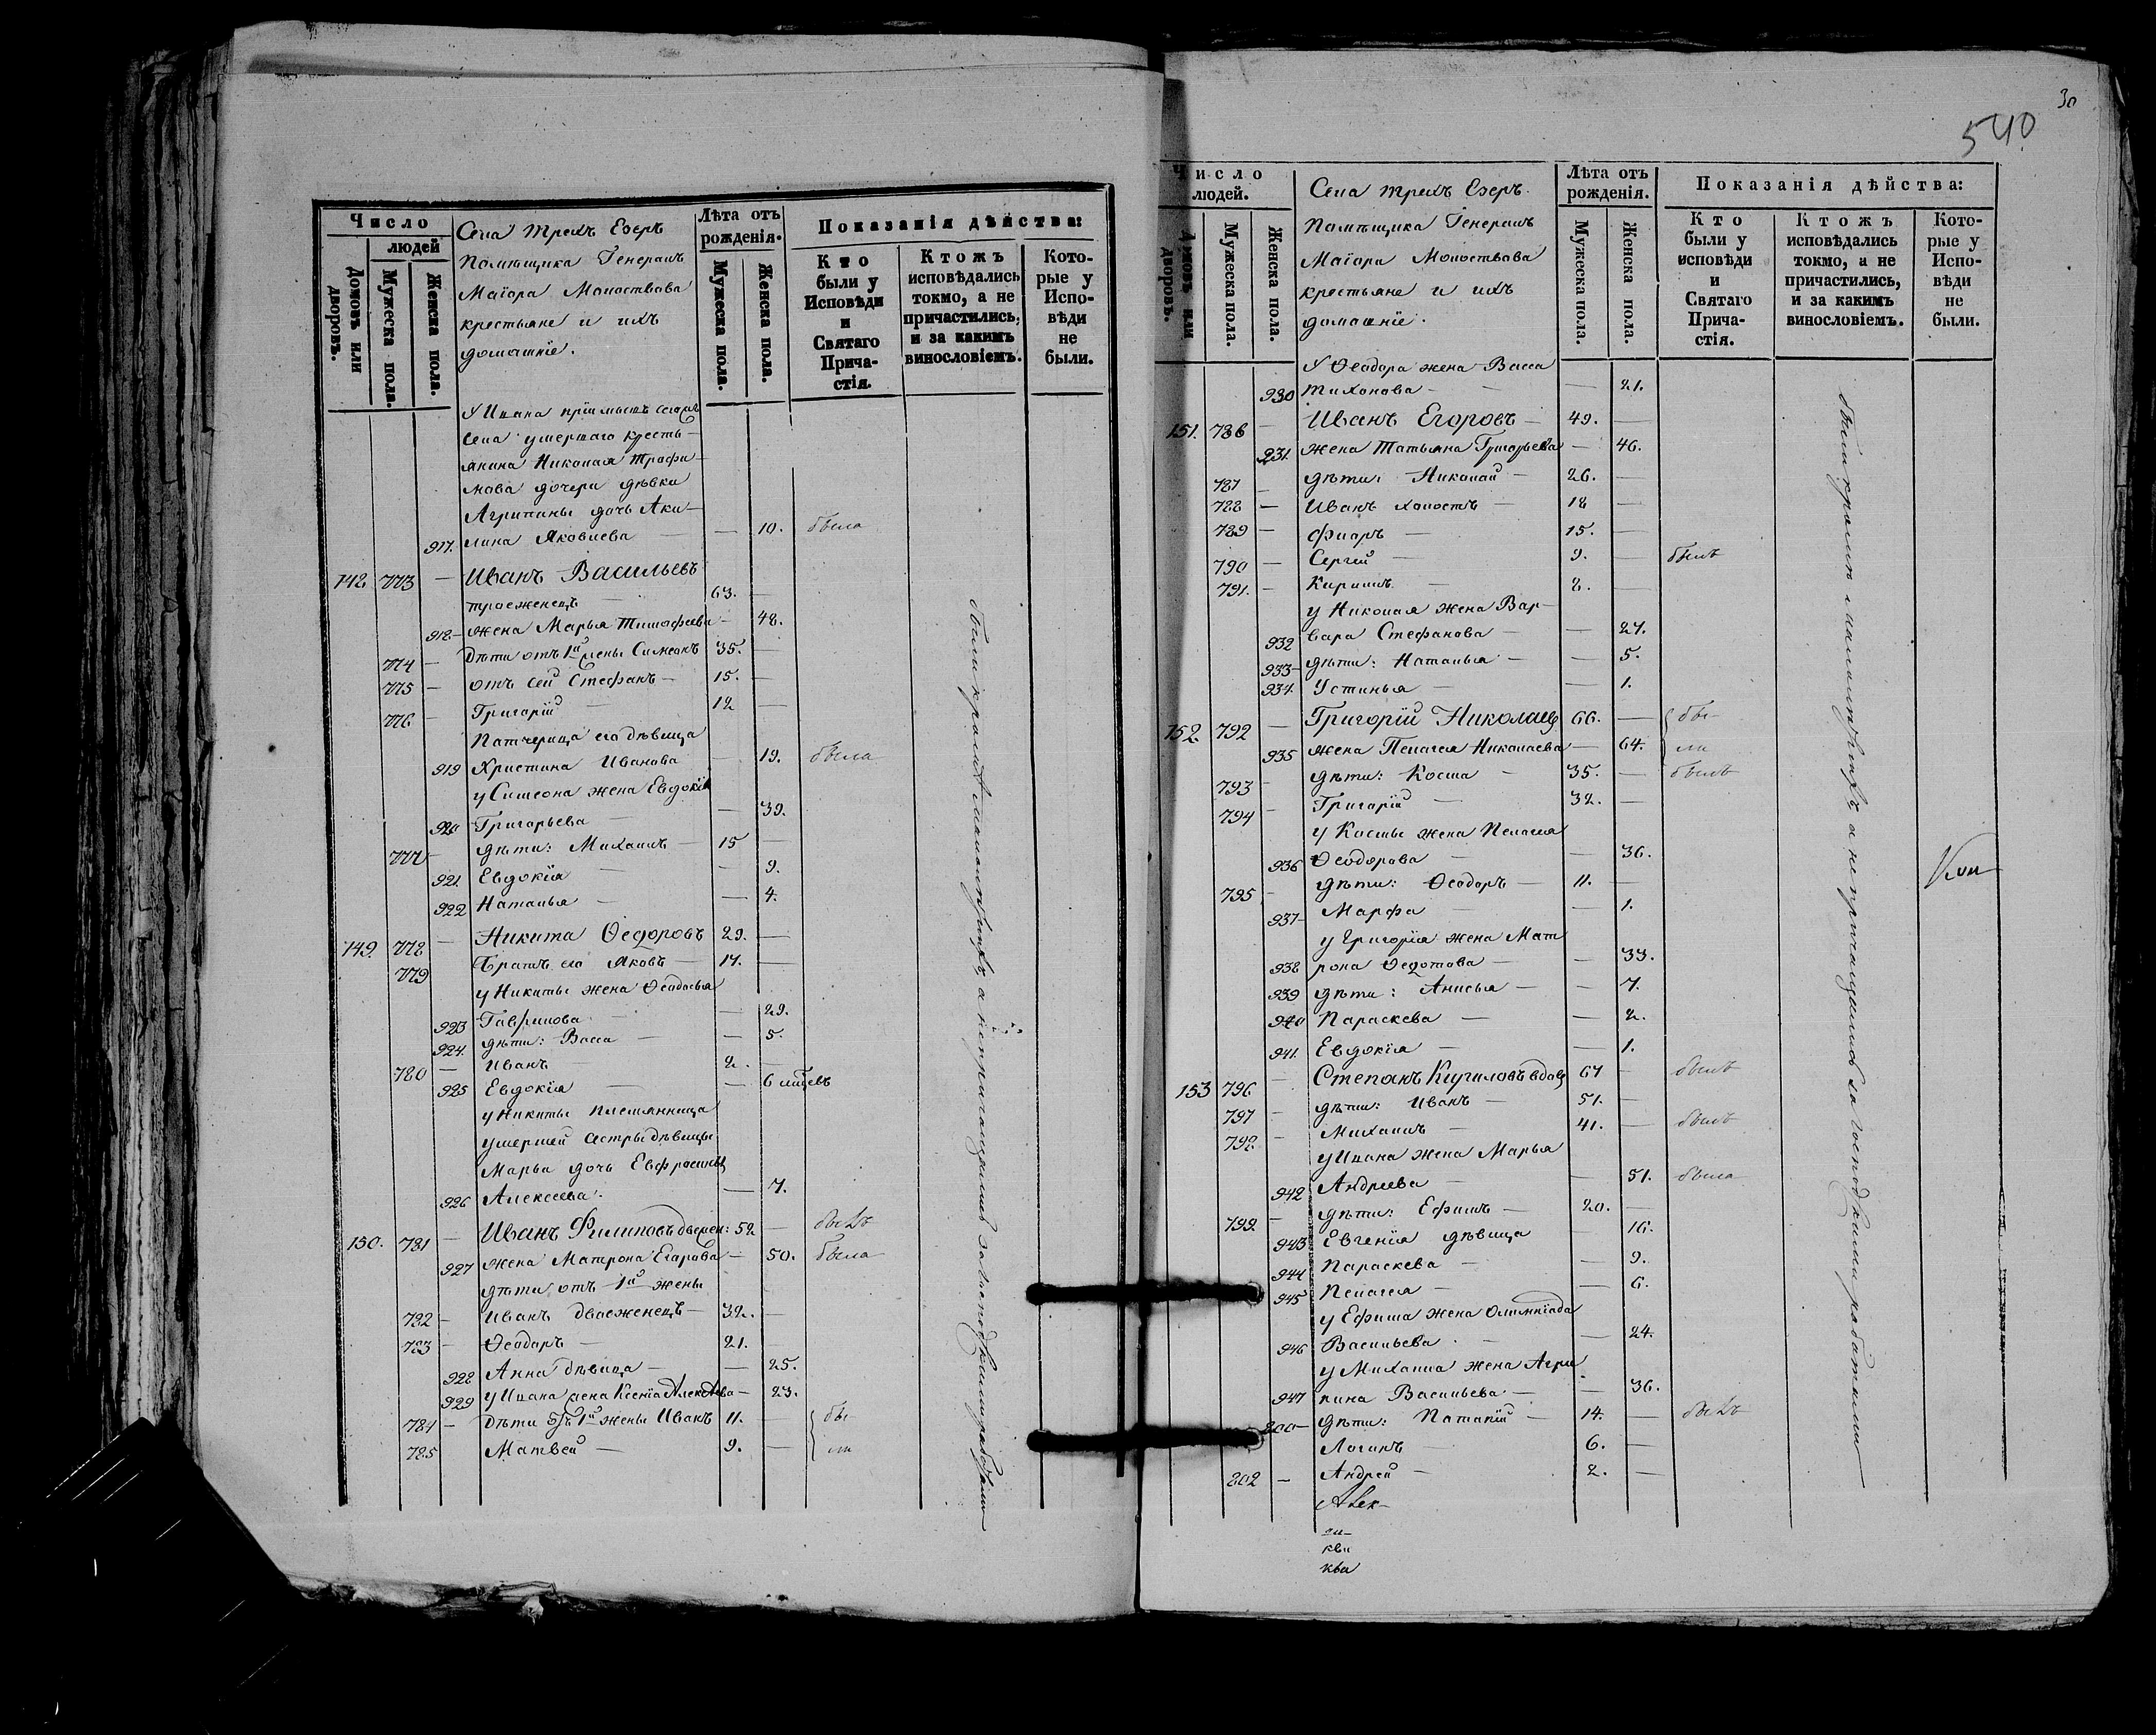 Число
людей
Домовъ или дворовъ.
Мужеска пола.
Женска пола.
Села Трехъ Езеръ
Помѣщика Генералъ
Маіора
крестьяне и ихъ
домашніе.
Лѣта отъ рожденія.
Мужеска пола.
Женска пола.
Показанія дѣйства:
Кто были у Исповѣди и Святаго Прича-стія.
Ктожъ исповѣдались токмо, а не причастились, и за какимъ винословіемъ.
Кото-рые у Испо-вѣди не были.
У Ивана
села умершаго кресть-
янина Николая Трофи-
мова дочери дѣвки
Агрипины дочь Аки-
917. лина Яковлева — — 10. была
148 773 — Иванъ Васильевъ
троеженецъ — 63. —
918 — жена Марья Тимофеева — 48.
774 — Дѣти отъ 1й жены Симеонъ 35. —
775 — отъ сей Стефанъ — 15. —
776 — Григорій — 12 —
Патчерица его дѣвица
919 Христина Иванова — 19. была
у Симеона жена Евдокія
920 Григорьева — — 39.
777 — дѣти: Михаилъ — 15 —
921. Евдокія — — 9.
922 Наталья — — 4.
149. 778 — Никита Ѳедоровъ 29. —
779 Братъ его Яковъ — 17. —
у Никиты жена Ѳеодосья
923 Гаврилова — — 29.
924. дѣти: Васса — — 5.
780 — Иванъ — 2. —
925 Евдокія — — 6 мѣсцевъ
у Никиты племянница
умершей сестры дѣвицы
Марьи дочь Евфросинья
926 Алексеева. — 7.
150. 781 — Иванъ Филиповъ двоежен: 52 — былъ
927 жена Матрона Егорова — 50. была
дѣти отъ 1й жены
782 — Иванъ двоеженецъ — 32. —
783 — Ѳеодоръ — 21. —
928 Анна дѣвица — — 25.
929 у Ивана жена Ксенія Алексѣева — 23.
784 — Дѣти отъ 1й жены Иванъ 11. — бы-
785 Матвей — 9. — ли
были кромѣ малолѣтныхъ а не причащались за господскими работами
30
540
Число
людей.
Домовъ или дворовъ.
Мужеска пола.
Женска пола.
Села Трехъ Езеръ.
Помѣщика Генералъ
Маіора
крестьяне и ихъ
домашніе.
Лѣта отъ рожденія.
Мужеска пола.
Женска пола.
Показанія дѣйства:
Кто были у исповѣди и Святаго Прича-стія.
Ктожъ исповѣдались токмо, а не причастились, и за какимъ винословіемъ.
Кото-рые у Испо-вѣди не были.
У Ѳеодора жена Васса
930 Тихонова — — — 21.
151. 786 — Иванъ Егоровъ — 49. —
931. жена Татьяна Григорьева — 46.
787 — дѣти: Николай — 26. —
788 — Иванъ холостъ — 18 —
789 — Фиоръ — 15. —
790 — Сергей — 9. — былъ
791. — Кирилъ — 8. —
у Николая жена Вар-
932 вара Стефанова — — 27.
933 — дѣти: Наталья — — 5.
934. Устинья — — 1.
152. 792 — Григорій Николаевъ 66. — бы-
935 жена Пелагея Николаева — 64. ли
793 — дѣти: Косма — 35. — былъ
794 Григорій — 32. —
у Космы жена Пелагея
936 Ѳеодорова — — 36.
795 — дѣти: Ѳеодоръ — 11. —
937 — Марфа — — 1.
у Григорія жена Мат
938 рона Ѳедотова — — 33.
939 дѣти: Анисья — — 7.
940 Параскева — — 2.
941. Евдокія — — 1.
153 796 — Степанъ Кириловъ вдовъ 67 — былъ
797 — дѣти: Иванъ — 51. —
798. — Михаилъ — 41. — былъ
у Ивана жена Марья
942 Андреева — — 51. была
799. — дѣти: Ефимъ — 20. —
943 Евгенія дѣвица — 16.
944 Параскева — — 9.
945 Пелагея — — 6.
у Ефима жена Олимпіада
946 Васильева — — 24.
у Михаила жена Агри
947 пина Васильева — — 36.
800 — дѣти: Потапій — 14. — былъ
Логинъ — 6. —
802 — Андрей — 2. —
были кромѣ малолѣтныхъ а не причащались за господскими работами